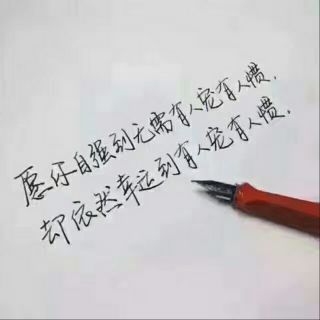 愿你自强到无需有人宠有人惯，
却依然幸运到有人宠有人惯．